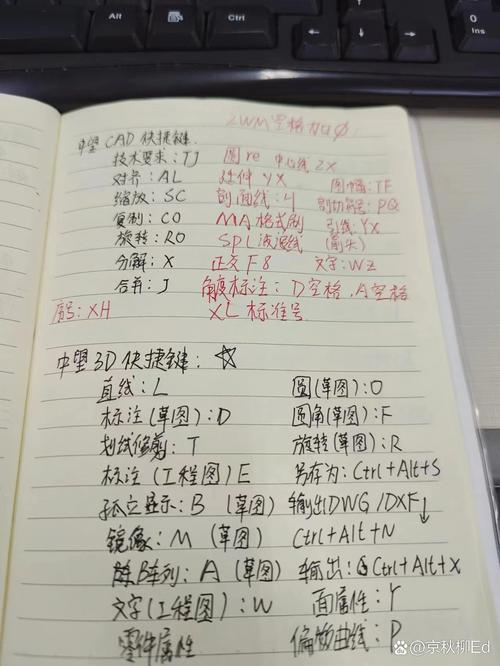 Alt
Ctrl
0
Ins
中望CAD快捷键
技术要求:TJ 圆re 中心线ZX
对齐:AL 延伸YX 图幅:TF
缩放:SC 剖面线:H 剖切符号:PQ
复制:CO MA格式刷 引线:YX
旋转:RO SPL波浪线 (箭头)
分解:X 正交F8 文字:WZ
合并:J 角度标注:D空格,A空格
序号:XH XL标准号
中望3D快捷键:☆
直线:L 圆(草图):O
标注(草图):D 圆角(草图):F
划线修剪:T 旋转(草图):R
标注(工程图)E 另存为:Ctrl+Alt+S
孤立显示:B (草图)输出DWG/DXF↓
镜像:M(草图) Ctrl+Alt+N
阵列:A(草图) 输出:Ctrl+Alt+X
文字(工程图):W 面属性:Y
零件属性 偏移曲线:P
Baidu @京秋柳Ed